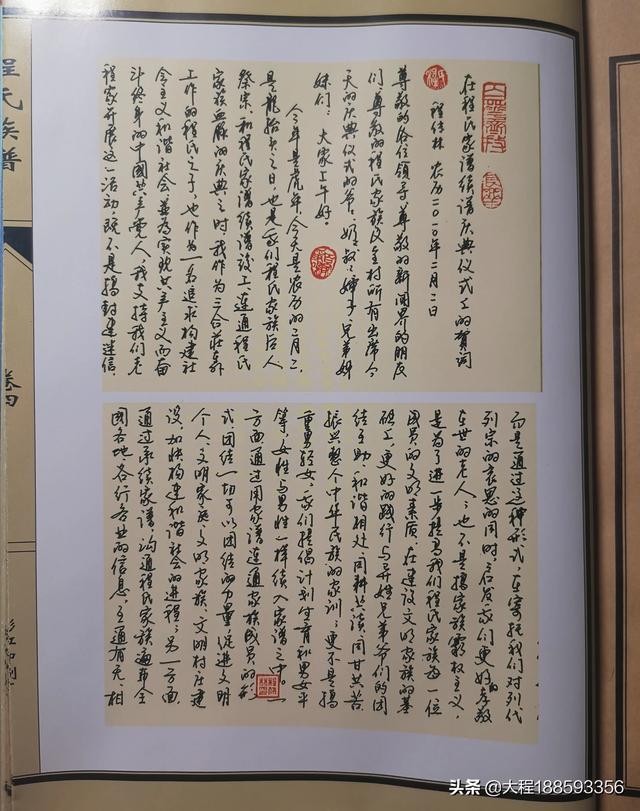 在程氏家谱续谱庆典仪式上的贺词
程传林 农历二〇一〇年二月二日
尊敬的各位领导、尊敬的新闻界的朋友
们、尊敬的程氏家族及全村所有出席今
天的庆典仪式的爷、奶、叔、婶子、兄弟姊
妹们:大家上午好。
今年是虎年,今天是农历的二月二,
是龙抬头之日,也是我们程氏家族后人
祭宗和程氏家谱续谱竣工连通程氏
家族血脉的庆典之时,我作为三合庄在外
工作的程氏之子,也作为一名追求构建社
会主义和谐社会,并为实现共产主义而奋
斗终身的中国共产党人,我支持我们老
程家开展这一活动,既不是搞封建迷信,
而是通过这种形式,在寄托我们对列代
列宗的哀思的同时,启发我们更好的孝敬
在世的老人;也不是搞家族霸权主义,
是为了进一步提高我们程氏家族每一位
成员的文明素质,在建设文明家族的基
础上,更好的践行与异姓兄弟爷们的团
结互助、和谐相处、同耕共读、同甘共苦
振兴整个中华民族的家训;更不是搞
重男轻女,我们提倡计划生育和男女平
等,女性与男性一样续入家谱之中。一
方面通过用家谱连通家族成员的形
式团结一切可以团结的力量,促进文明
个人、文明家庭、文明家族、文明村庄建
设,加快构建和谐社会的进程;另一方面,
通过承续家谱,沟通程氏家族遍布全
国各地各行各业的信息,互通有无,相
程氏族谱
卷四
头条 @大程188593356